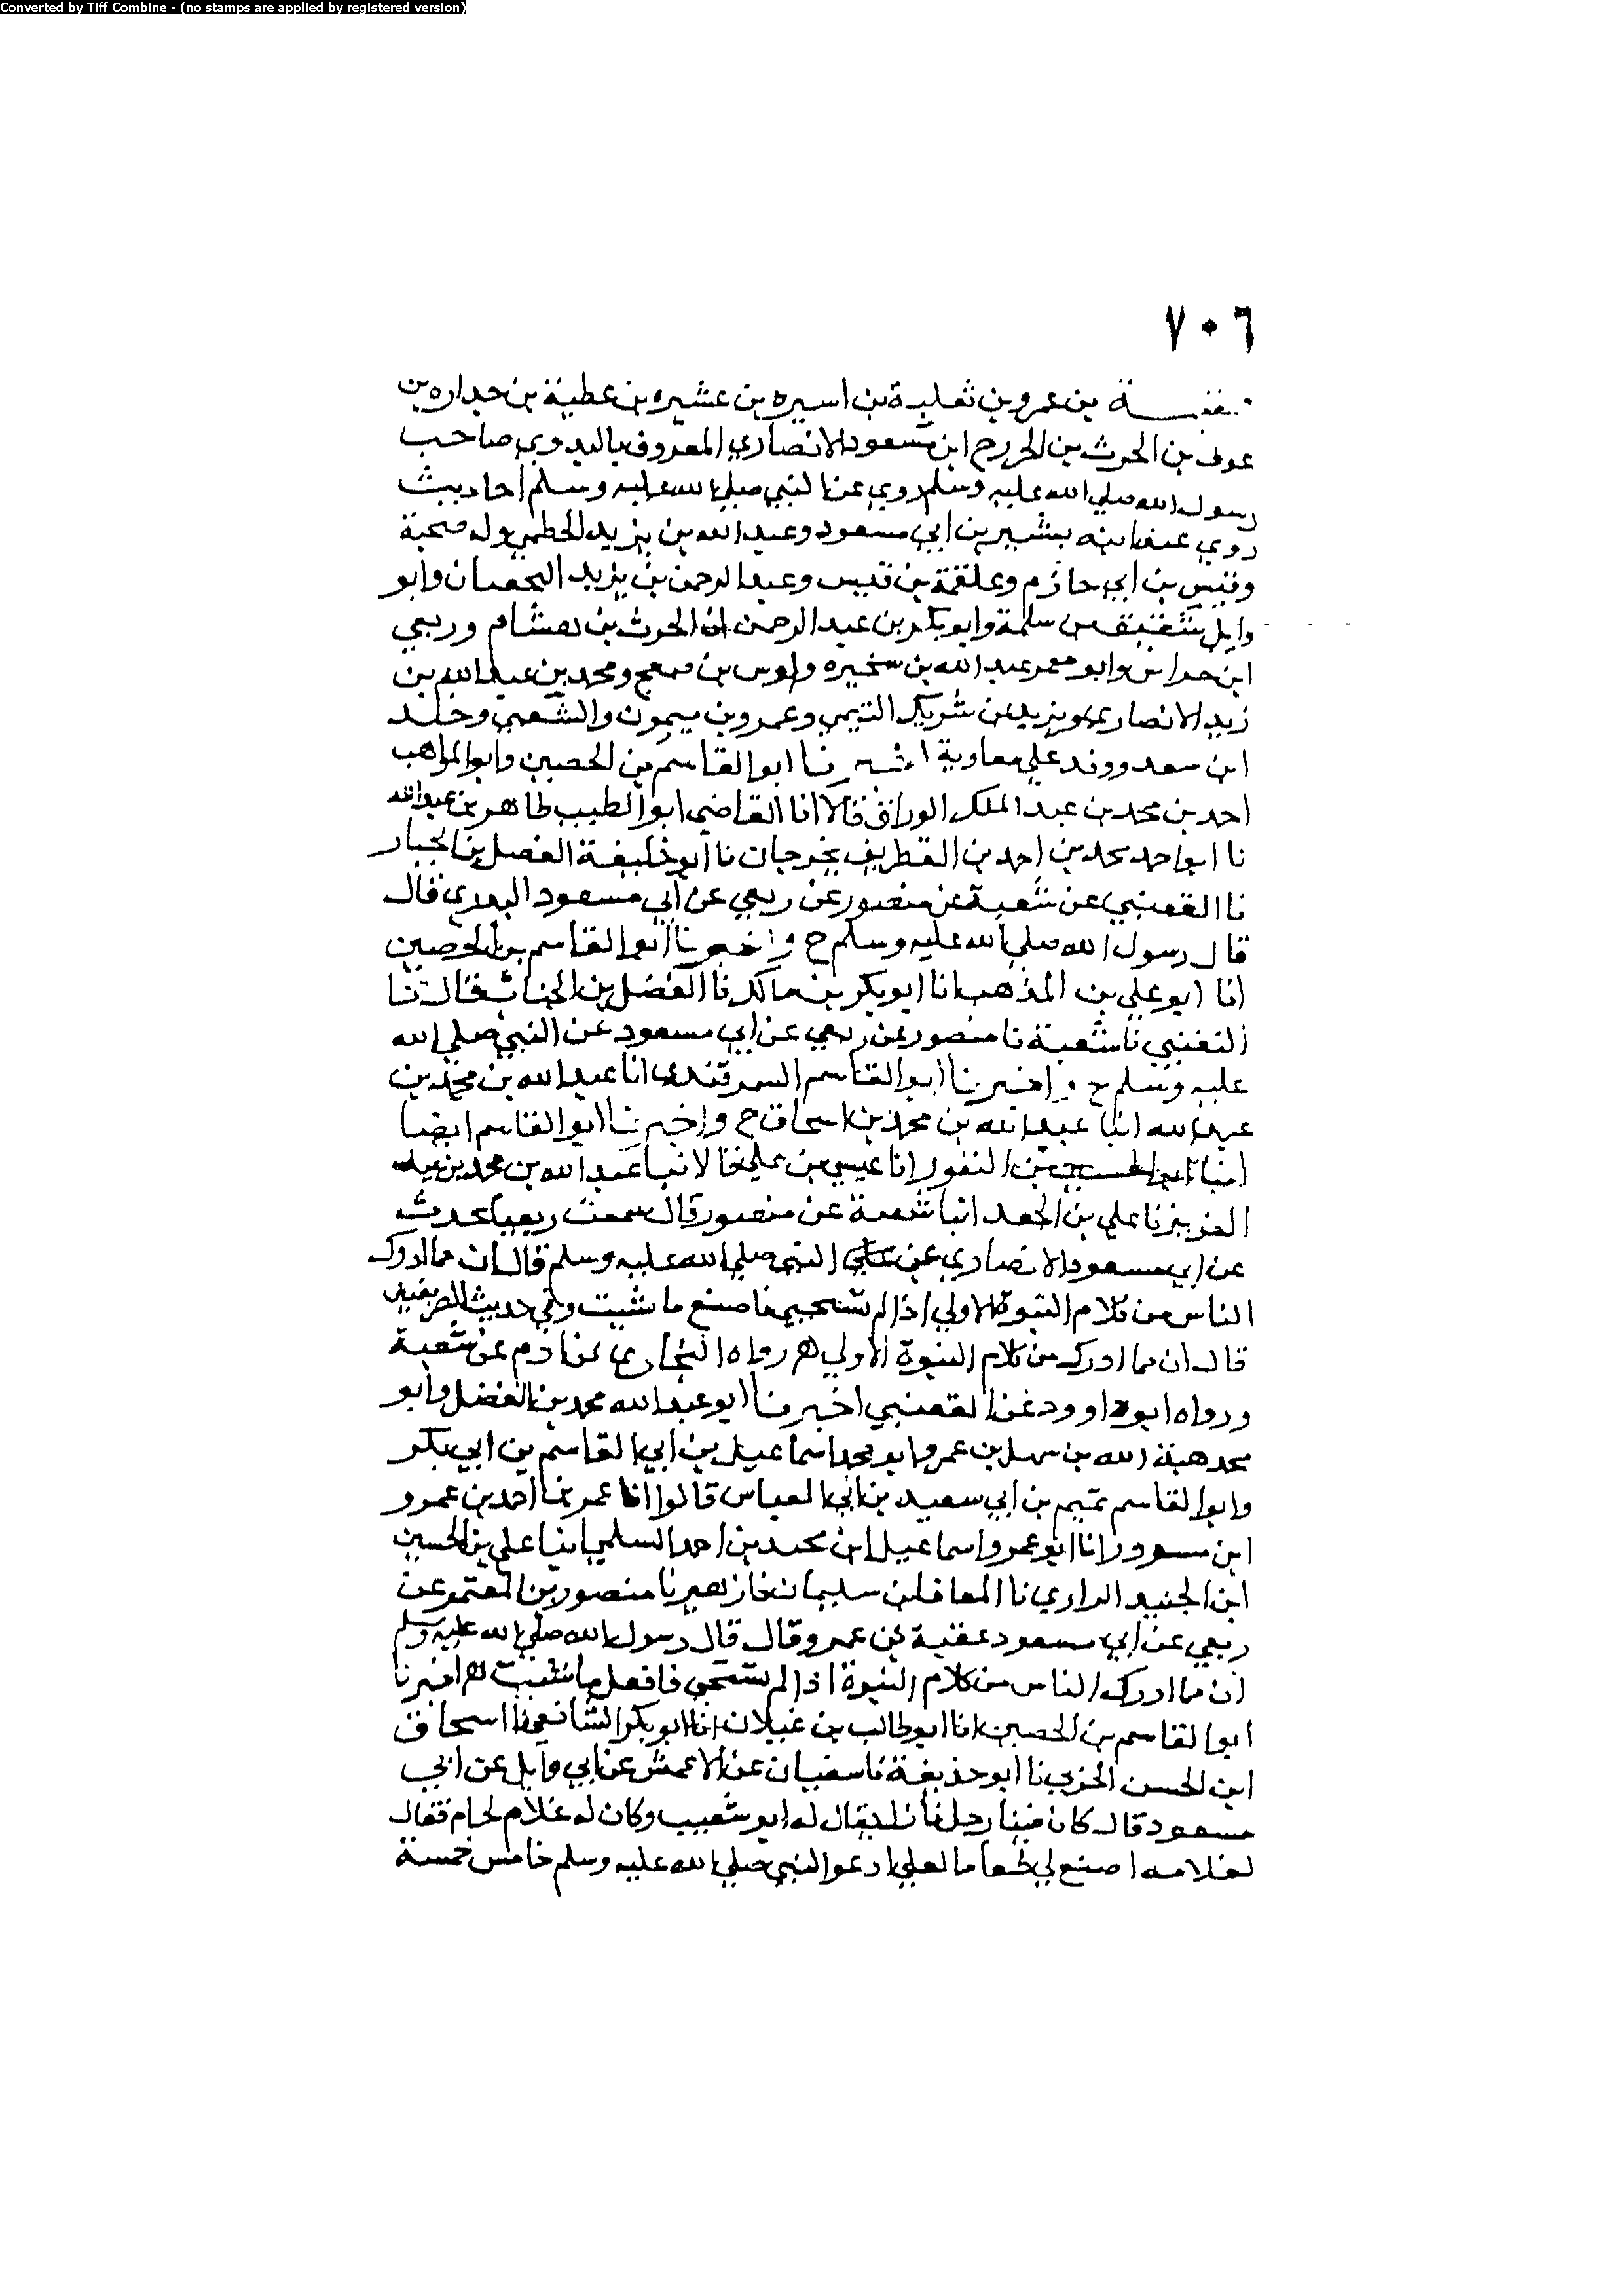 Converted by Tiff Combine - (no stamps are applied by registered version)
٧٠٦
عقبـــة بن عمرو بن ثعلبة بن اسيره بن عشيره بن عطية بن جداره بن
عوف بن الحرث بن الخزرج ابن مسعود الانصاري المعروف بالبدوي صاحب
رسول الله صلي الله عليه وسلم روي عن النبي صلي الله عليه وسلم احاديث
روي عنه ابنه بشير بن ابي مسعود وعبد الله بن يزيد الخطمي وله صحبة
وقيس بن ابي حازم وعلقمة بن قيس وعبد الرحمن بن يزيد النخعيان وابو
وايل شقيق بن سلمة وابو بكر بن عبد الرحمن ابن الحرث بن هشام وربعي
ابن حراش وابو معمر عبد الله بن سخبره واوس بن ضمعج ومحمد بن عبد الله بن
زيد الانصاري ويزيد بن شريك التيمي وعمرو بن ميمون والشعبي وخلد
ابن سعد ووفد علي معاوية اخبرنا ابو القاسم بن الحصين وابو المواهب
احمد بن محمد بن عبد الملك الوراق قالا انا القاضي ابو الطيب طاهر بن عبد الله
نا ابو احمد محمد بن احمد بن الغطريف بجرجان نا ابو خليفة الفضل بن الحباب
نا القعنبي عن شعبة عن منصور عن ربعي عن ابي مسعود البدري قال
قال رسول الله صلي الله عليه وسلم ح واخبرنا ابو القاسم بن الحصين
انا ابو علي بن المذهب انا ابو بكر بن مالك نا الفضل بن الحباب قال نا
القعنبي نا شعبة نا منصور عن ربعي عن ابي مسعود عن النبي صلي الله
عليه وسلم ح واخبرنا ابو القاسم السمرقندي انا عبد الله بن محمد بن
عبد الله انبا عبيد الله بن محمد بن اسحاق ح واخبرنا ابو القاسم ايضا
انبا ابو الحسين بن النقور انا عيسي بن علي قالا نبا عبد الله بن محمد بن عبد
العزيز نا علي بن الجعد انبا شعبة عن منصور قال سمعت ربعيا يحدث
عن ابي مسعود الانصاري عن النبي صلي الله عليه وسلم قال ان مما ادرك
الناس من كلام النبوة الاولي اذا لم تستحيي فاصنع ما شيت وفي حديث الصريفيني
قال ان مما ادرك من كلام النبوة الاولي هم رواه البخاري عن ادم عن شعبة
ورواه ابو داوود عن القعنبي اخبرنا ابو عبد الله محمد بن الفضل وابو
محمد هبة الله بن سهل بن عمر وابو محمد اسماعيل بن ابي القاسم بن ابي بكر
وابو القاسم تميم بن ابي سعيد بن ابي العباس قالوا انا عمر بن احمد بن عمرو
ابن مسرور انا ابو عمرو اسماعيل ابن محمد بن احمد السلمي انبا علي بن الحسين
ابن الجنيد الرازي نا المعافا بن سليمان نا زهير نا منصور بن المعتمر عن
ربعي عن ابي مسعود عقبة بن عمرو قال قال رسول الله صلي الله عليه وسلم
ان مما ادرك الناس من كلام النبوة اذا لم تستحي فافعل ما شيت هم اخبرنا
ابو القاسم بن الحصين انا ابو طالب بن غيلان انا ابو بكر الشافعي نا اسحاق
ابن الحسن الحربي نا ابو حذيفة نا سفيان عن الاعمش عن ابي وايل عن ابي
مسعود قال كان فينا رجل نازل يقال له ابو شعيب وكان له غلام لحام فقال
لغلامه اصنع لي طعاما لعلي ادعو النبي صلي الله عليه وسلم خامس خمسة